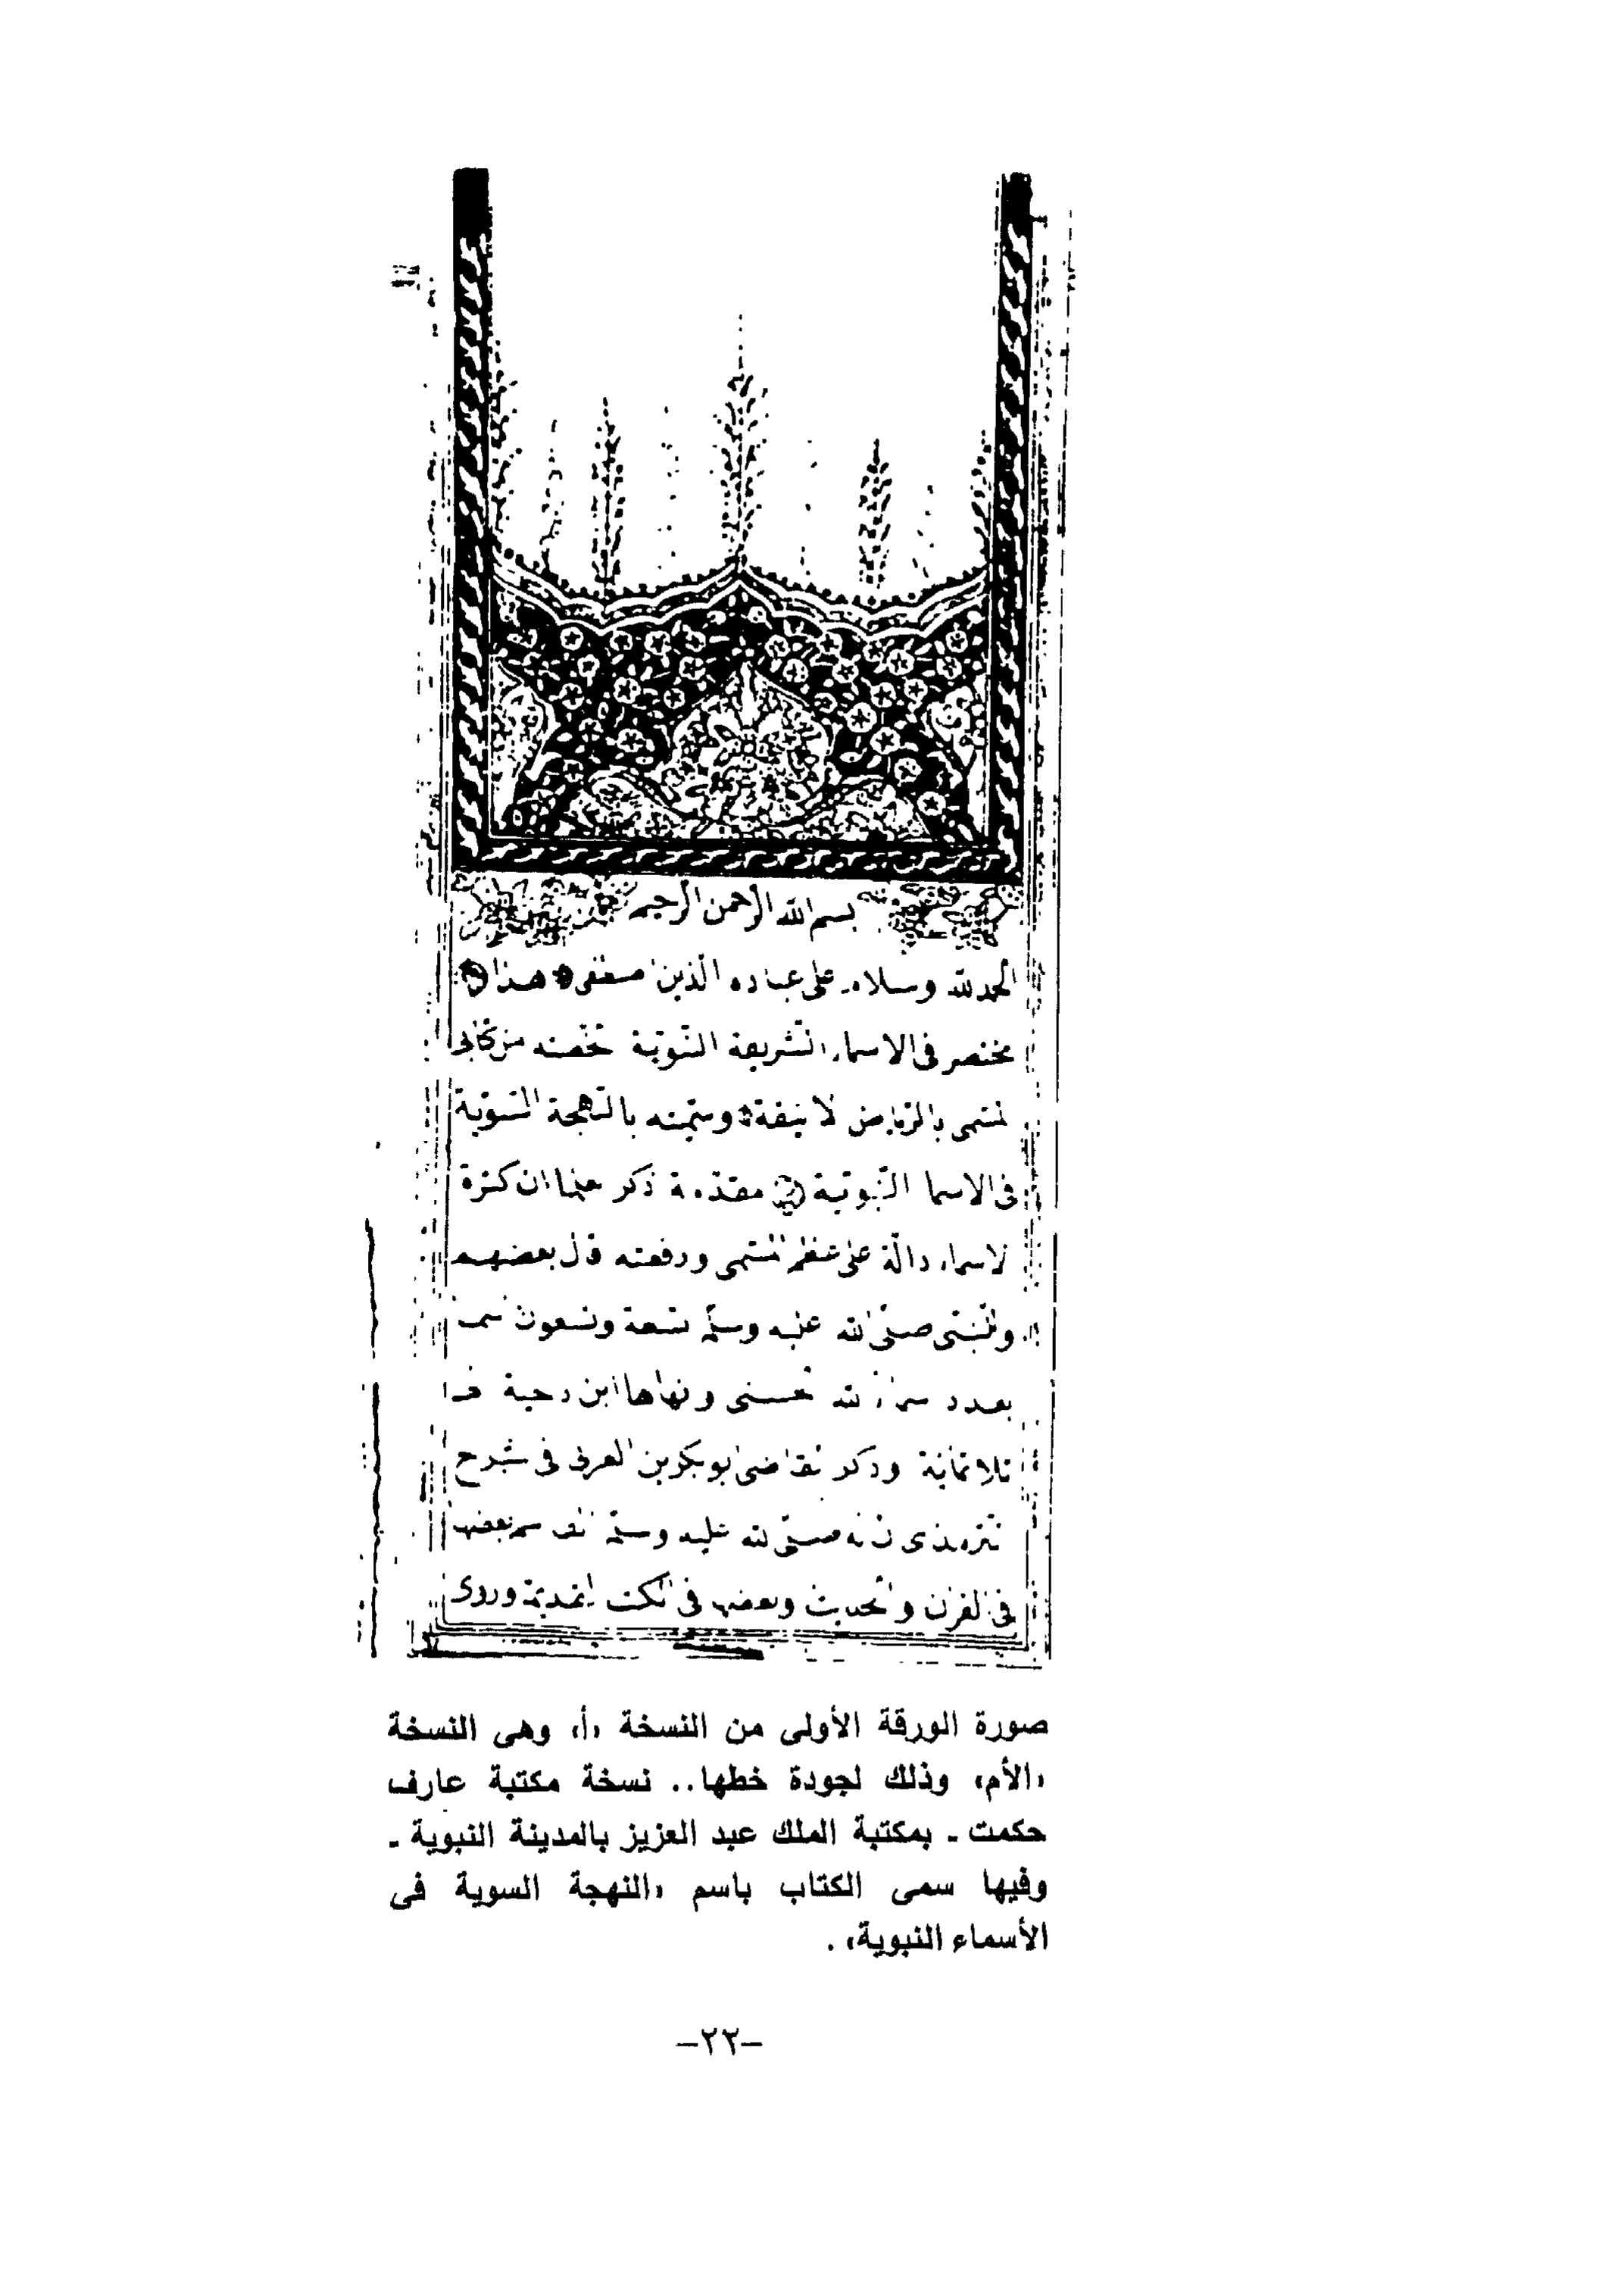 بسم الله الرحمن الرحيم
الحمد لله وسلام على عباده الذين اصطفى هذا
مختصر فى الاسماء الشريفة النبوية لخصته من كتابى
المسمى بالرياض الانيقة وسميته بالنهجة السوية
فى الاسما النبوية مقدمة ذكر علما ان كثرة
الاسماء دالة على عظم المسمى ورفعته قال بعضهم
وللنبى صلى الله عليه وسلم تسعة وتسعون اسما
بعدد اسماء الله الحسنى وانهاها ابن دحية
ثلاثمائة وذكر القاضى ابو بكر بن العربى فى شرح
الترمذى ان له صلى الله عليه وسلم الف اسم بعضها
فى القرآن والحديث وبعضها فى الكتب القديمة وروى
صورة الورقة الأولى من النسخة «أ» وهى النسخة
«الأم» وذلك لجودة خطها.. نسخة مكتبة عارف
حكمت ـ بمكتبة الملك عبد العزيز بالمدينة النبوية ـ
وفيها سمى الكتاب باسم «النهجة السوية فى
الأسماء النبوية» .
–٢٢–